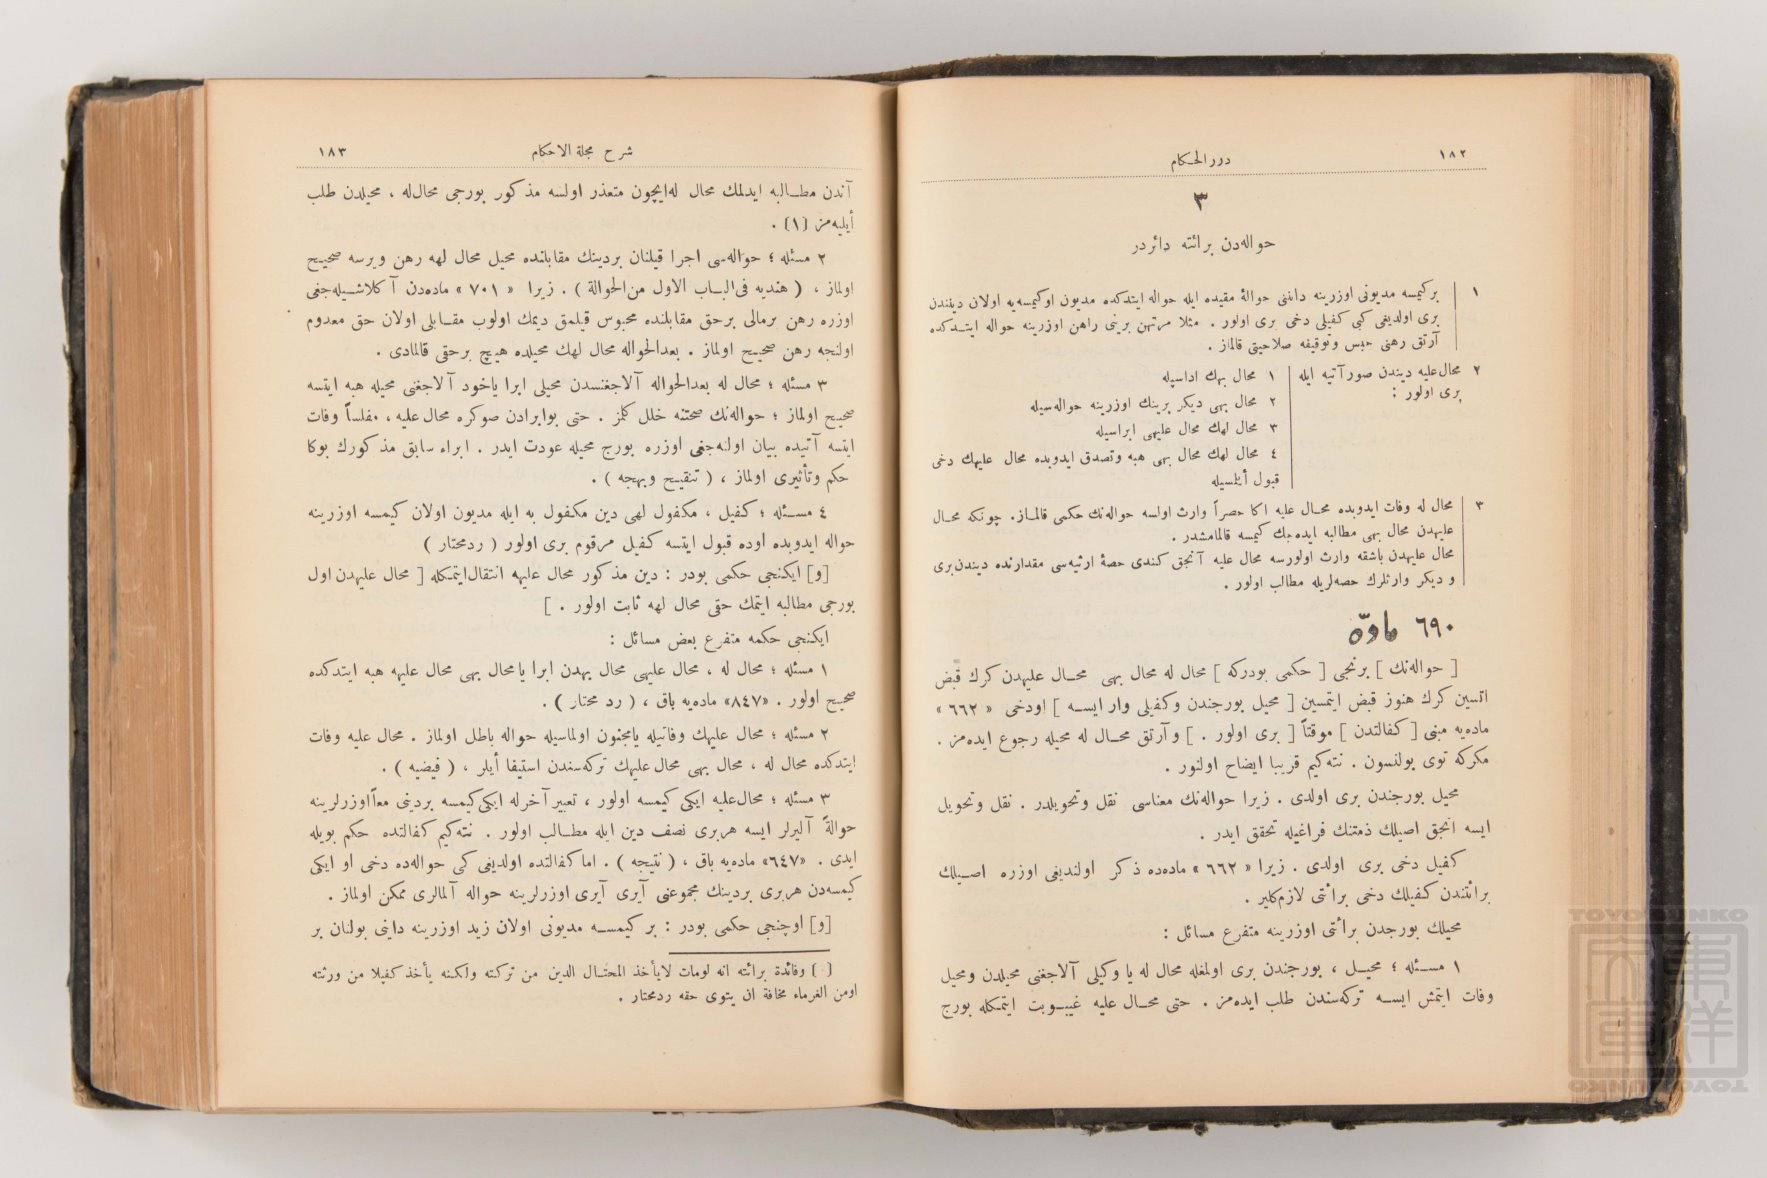 ١٨٢
درر الحكام
٣
حواله‌دن برائته دائردر
١ بركيمسه مديونى اوزرينه دائنى حوالهٔ مقيده ايله حواله ايتدكده مديون اوكيمسه‌يه اولان ديننندن
برى اولديغى كبى كفيلى دخى برى اولور . مثلا مرتهن برينى راهن اوزرينه حواله ايتــدكده
آرتق رهنى حبس وتوقيفه صلاحيتى قالماز .
٢ محال‌عليه ديندن صور آتيه ايله
برى اولور :
١ محال بهك اداسيله
٢ محال بهى ديكر برينك اوزرينه حواله‌سيله
٣ محال لهك محال عليهى ابراسيله
٤ محال لهك محال بهى هبه وتصدق ايدوبده محال عليهك دخى
قبول أيلسيله
٣ محال له وفات ايدوبده محـال عليه اكا حصراً وارث اولسه حواله‌نك حكمى قالمـاز. چونكه محـال
عليهدن محال بهى مطالبه ايده‌جك كيمسه قالمامشدر .
محال عليهدن باشقه وارث اولورسه محال عليه آنجق كندى حصهٔ ارثيه‌سى مقدارنده ديندن‌برى
و ديكر وارثلرك حصه‌لريله مطالب اولور .
٦٩٠ ماده
[ حواله‌نك ] برنجى [ حكمى بودركه ] محال له محال بهى محـال عليهدن كرك قبض
اتسين كرك هنوز قبض ايتمسين [ محيل بورجندن وكفيلى وار ايســه ] اودخى « ٦٦٢ »
ماده‌يه مبنى [ كفالتدن ] موقتاً [ برى اولور . ] و آرتق محـال له محيله رجوع ايده‌من .
مكركه توى بولنسون . نته‌كيم قريبا ايضاح اولنور .
محيل بورجندن برى اولدى . زيرا حواله‌نك معناسى نقل وتحويلدر . نقل وتحويل
ايسه انجق اصيلك ذمتنك فراغيله تحقق ايدر .
كفيل دخى برى اولدى . زيرا « ٦٦٢ » ماده‌ده ذكر اولنديغى اوزره اصـيلك
برائتندن كفيلك دخى برائتى لازم‌كلير .
محيلك بورجدن برائتى اوزرينه متفرع مسائل :
١ مسـئله ؛ محيـل ، بورجندن برى اولمغله محال له يا وكيلى آلاجغنى محيلدن ومحيل
وفات ايتمش ايســه تركه‌سندن طلب ايده‌من . حتى محـال عليه غيبـوبت ايتمكله بورج
شرح مجلة الاحكام
١٨٣
آندن مطــالبه ايدلمك محال له‌ايچون متعذر اولسه مذكور بورجى محال‌له ، محيلدن طلب
أيليه‌من (١) .
٢ مسئله ؛ حواله‌سى اجرا قيلنان بردينك مقابلنده محيل محال لهه رهن ويرسه صحيح
اولماز ، ( هنديه فى‌البـاب الاول من‌الحوالة ) . زيرا « ٧٠١ » ماده‌دن آكلاشـيله‌جغى
اوزره رهن برمالى برحق مقابلنده محبوس قيلمق ديمك اولوب مقـابلى اولان حق معدوم
اولنجه رهن صحيح اولماز . بعدالحواله محال لهك محيلده هيچ برحقى قالمادى .
٣ مسئله ؛ محال له بعدالحواله آلاجغنـدن محيلى ابرا ياخود آلاجغنى محيله هبه ايتسه
صحيح اولماز ؛ حواله‌نك صحتنه خلل كلمز . حتى بوابرادن صوكره محال عليه ، مفلساً وفات
ايتسه آتيده بيان اولنه‌جغى اوزره بورج محيله عودت ايدر . ابراء سابق مذكورك بوكا
حكم وتأثيرى اولماز ، ( تنقيـح وبهجه ) .
٤ مسـئله ؛ كفيل ، مكفول لهى دين مكفول به ايله مديون اولان كيمسه اوزرينه
حواله ايدوبده اوده قبول ايتسه كفيل مرقوم برى اولور ( ردمحتار )
[و] ايكنجى حكمى بودر : دين مذكور محال عليهه انتقال‌ايتمكله [ محال عليهدن اول
بورجى مطالبه ايتمك حقى محال لهه ثابت اولور . ]
ايكنجى حكمه متفرع بعض مسائل :
١ مسئله ؛ محال له ، محال عليهى محال بهدن ابرا يا محال بهى محال عليهه هبه ايتدكده
صحيح اولور . «٨٤٧» ماده‌يه باق ، ( رد محتار ) .
٢ مسئله ؛ محال عليهك وفاتيله يامجنون اولماسيله حواله باطل اولماز . محال عليه وفات
ايتدكده محال له ، محال بهى محال عليهك تركه‌سندن استيفا أيلر ، ( فيضيه ) .
٣ مسئله ؛ محال‌عليه ايكى كيمسه اولور ، تعبير آخرله ايكى‌كيمسه بردينى معاً اوزرلرينه
حوالةً آليرلر ايسه هربرى نصف دين ايله مطـالب اولور . نته‌كيم كفالتده حكم بويله
ايدى . «٦٤٧» ماده‌يه باق ، ( نتيجه ) . اما كفالتده اولديغى كبى حواله‌ده دخى او ايكى
كيمسه‌دن هربرى بردينك مجموعنى آيرى آيرى اوزرلرينه حواله آلمالرى ممكن اولماز .
[و] اوچنجى حكمى بودر : بر كيمســه مديونى اولان زيد اوزرينه داينى بولنان بر
( ) وفائدة برائته انه لومات لايأخذ المحتـال الدين من تركته ولكنه يأخذ كفيلا من ورثته
اومن الغرماء مخافة ان يتوى حقه ردمحتار .
TOYO BUNKO
東洋文庫
TOYO BUNKO